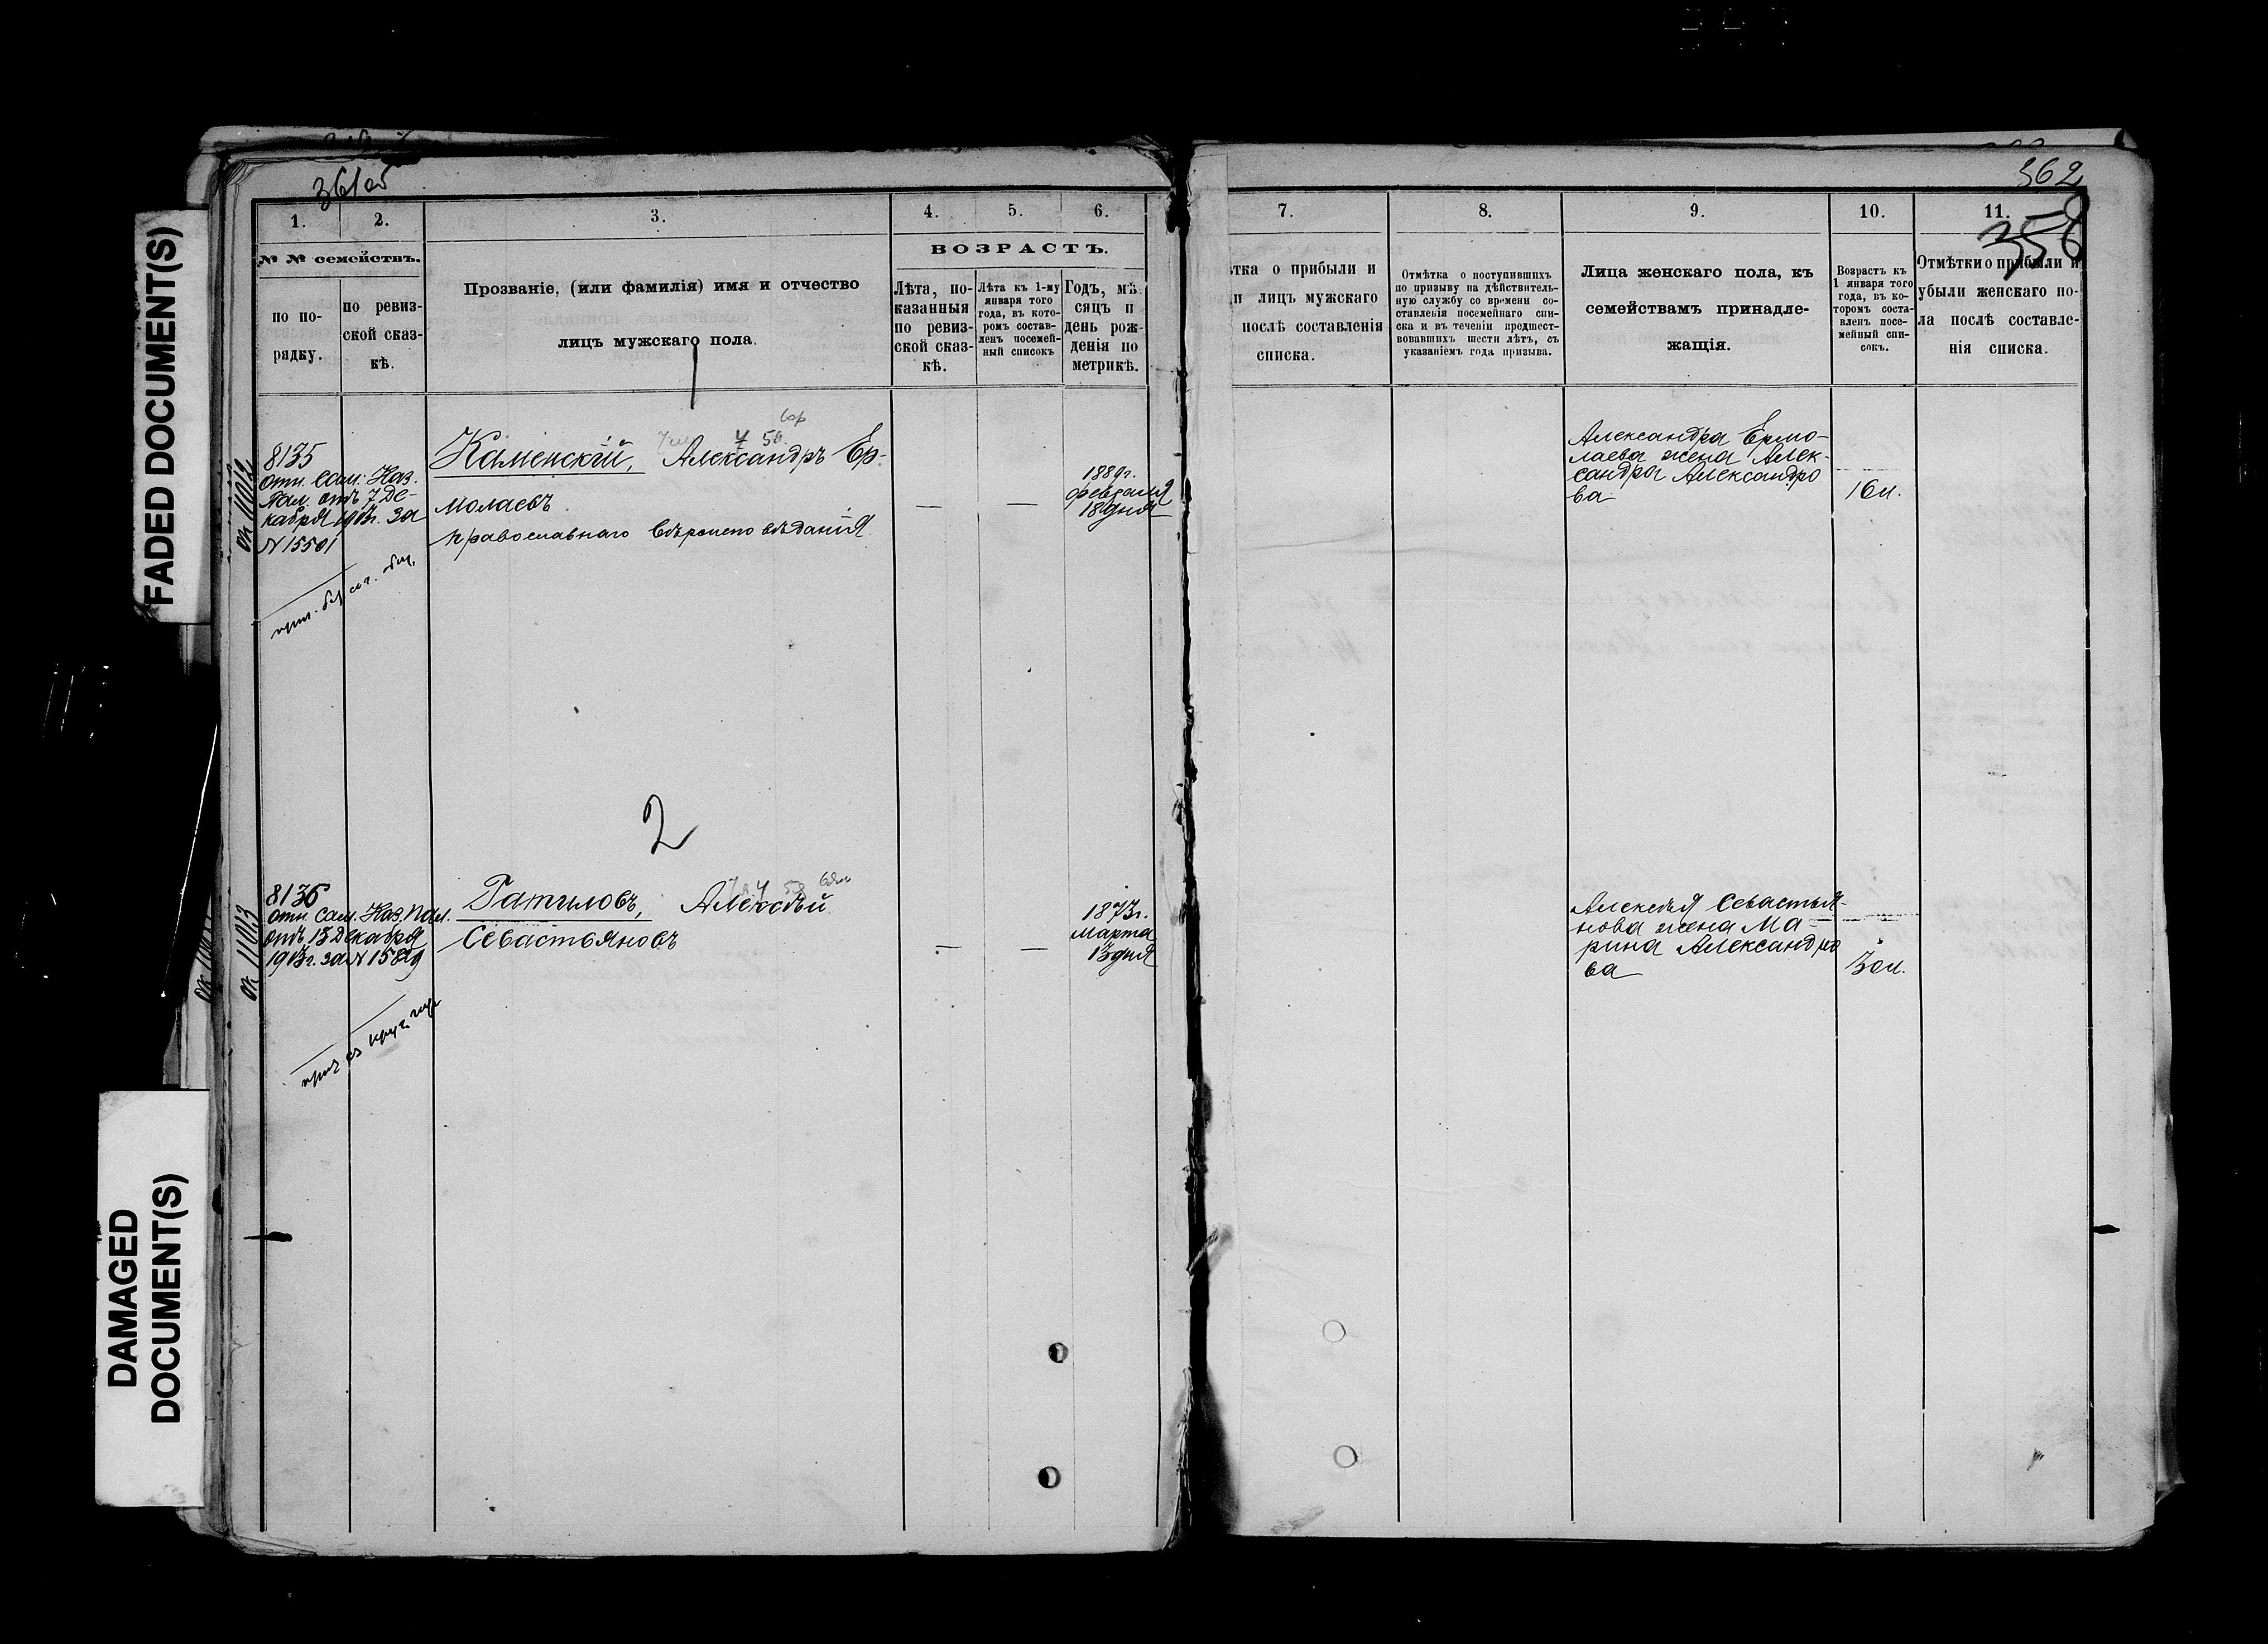 FADED DOCUMENT(S)
DAMAGED
DOCUMENT(S)
361об
1.
2.
3.
4.
5.
6.
№ № семействъ.
по по-
рядку.
по ревиз-
ской сказ-
кѣ.
Прозваніе, (или фамилія) имя и отчество
лицъ мужскаго пола.
ВОЗРАСТЪ.
Лѣта, по-
казанныя
по ревиз-
ской сказ-
кѣ.
Лѣта къ 1-му
января того
года, въ кото-
ромъ состав-
ленъ посемей-
ный списокъ
Годъ, мѣ-
сяцъ и
день рож-
денія по
метрикѣ.
1
8135
отн. Сам. Каз.
Пал. отъ 7 Де-
кабря 1913г. за
N 15501
ок 11012
Каменскій, Александръ Ер-
молаевъ
православнаго вѣроисповѣданія
—
—
1889г.
февраля
18 дня
2
8136
отн. Сам. Каз. Пал.
отъ 13 Декабря
1913г. за N 15829
ок 11013
Ратиловъ, Алексѣй
Севастьяновъ
—
—
1873г.
Марта
13 дня
362
358
7.
8.
9.
10.
11.
тка о прибыли и
и лицъ мужскаго
послѣ составленія
списка.
Отмѣтка о поступившихъ
по призыву на дѣйствитель-
ную службу со времени со-
ставленія посемейнаго спи-
ска и въ теченіи предшест-
вовавшихъ шести лѣтъ, съ
указаніемъ года призыва.
Лица женскаго пола, къ
семействамъ принадле-
жащія.
Возрастъ къ
1 января того
года, въ ко-
торомъ соста-
вленъ посе-
мейный спи-
сокъ.
Отмѣтки о прибыли и
убыли женскаго по-
ла послѣ составле-
нія списка.
Александра Ермо-
лаева жена Алек-
сандра Александро
ва
16 л.
Алексѣя Севастья-
нова жена Ма-
рина Александро
ва
30 л.